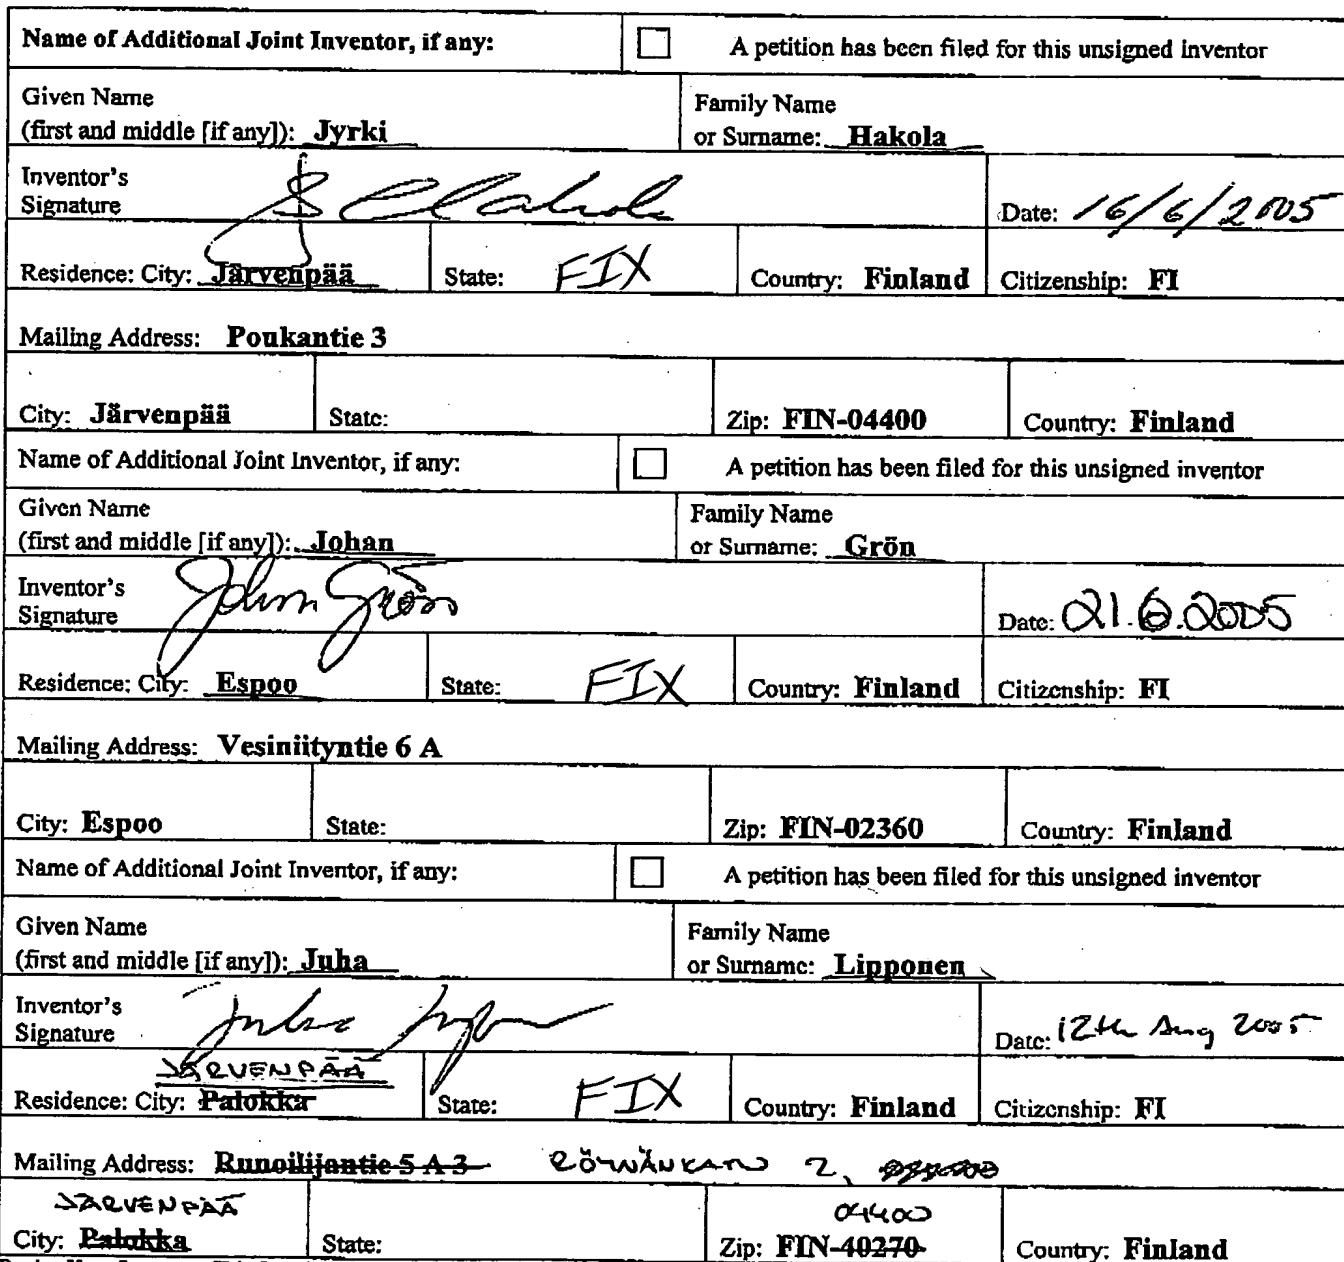 Name of Additional Joint Inventor, if any: A petition has been filed for this unsigned inventor
Given Name
(first and middle [if any]): Jyrki
Family Name
or Surname: Hakola
Inventor's
Signature
Date: 16/6/2005
Residence: City: Järvenpää State: FIX Country: Finland Citizenship: FI
Mailing Address: Poukantie 3
City: Järvenpää State: Zip: FIN-04400 Country: Finland
Name of Additional Joint Inventor, if any: A petition has been filed for this unsigned inventor
Given Name
(first and middle [if any]): Johan
Family Name
or Surname: Grön
Inventor's
Signature Johan Grön
Date: 21.6.2005
Residence: City: Espoo State: FIX Country: Finland Citizenship: FI
Mailing Address: Vesiniityntie 6 A
City: Espoo State: Zip: FIN-02360 Country: Finland
Name of Additional Joint Inventor, if any: A petition has been filed for this unsigned inventor
Given Name
(first and middle [if any]): Juha
Family Name
or Surname: Lipponen
Inventor's
Signature Juha
Date: 12th Aug 2005
JÄRVENPÄÄ
Residence: City: Palokka State: FIX Country: Finland Citizenship: FI
Mailing Address: Runoilijantie 5 A 3 2,
JÄRVENPÄÄ 04400
City: Palokka State: Zip: FIN-40270 Country: Finland